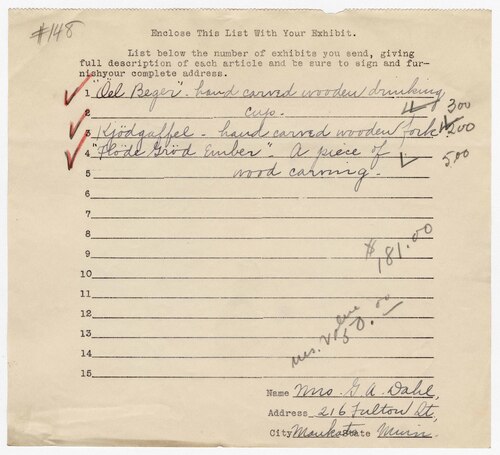 #148
Enclose This List With Your Exhibit.
List below the number of exhibits you send, giving
full description of each article and be sure to sign and fur-
nishyour complete address.
1 "Öel Beger" hand carved wooden drinking
2 cup. 300
3 Kjödgaffel - hand carved wooden fork 200
4 "Flöde Gröd Ember" - A piece of 500
5 wood carving.
6
7
8
9
$181.00
10
11
12
ins. value
50.00
13
14
15
Name Mrs G A Dahl,
Address 216 Fulton St,
City Mankato State Minn.